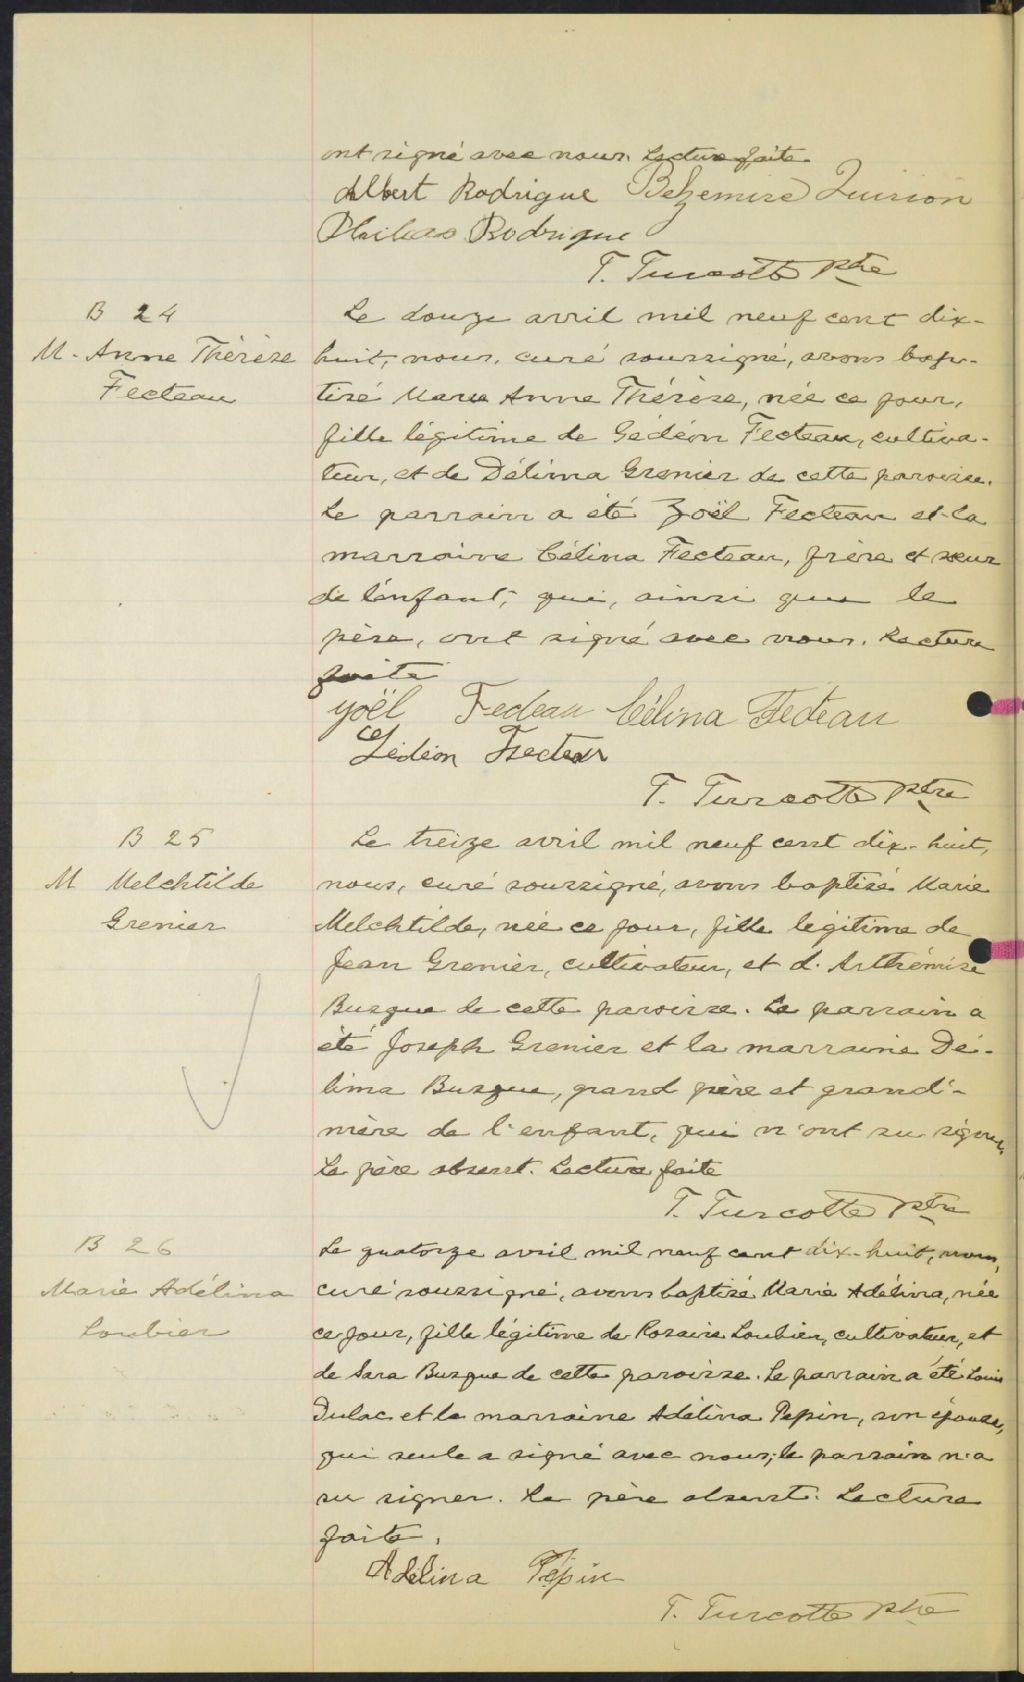 ont signé avec nous. Lecture faite.
Albert Rodrigue Bezemire Quirion
Rodrigue
T. Turcotte ptre
B 24
M. Anne Thérèse
Fecteau
Le douze avril mil neuf cent dix-
huit, nous, curé soussigné, avons bap-
tisé Marie Anne Thérèse, née ce jour,
fille légitime de Gédéon Fecteau, cultiva-
teur, et de Délima Grenier de cette paroisse.
Le parrain a été Zoël Fecteau et la
marraine Célina Fecteau, frère et sœur
de l'enfant, qui, ainsi que le
père, ont signé avec nous. Lecture
faite
yoël Fecteau Célina Fecteau
Gédéon Fecteau
T. Turcotte ptre
B 25
M Melchtilde
Grenier
Le treize avril mil neuf cent dix-huit,
nous, curé soussigné, avons baptisé Marie
Melchtilde, née ce jour, fille légitime de
Jean Grenier, cultivateur, et d. Arthémise
Busque de cette paroisse. Le parrain a
été Joseph Grenier et la marraine Dé-
lima Busque, grand père et grand'-
mère de l'enfant, qui n'ont su signer.
Le père absent. Lecture faite
T. Turcotte ptre
B 26
Marie Adélina
Loubier
Le quatorze avril mil neuf cent dix-huit, nous,
curé soussigné, avons baptisé Marie Adélina, née
ce jour, fille légitime de Rosaire Loubier, cultivateur, et
de Sara Busque de cette paroisse. Le parrain a été Louis
Dulac et la marraine Adélina Pepin, son épouse,
qui seule a signé avec nous; le parrain n'a
su signer. Le père absent. Lecture
faite.
Adélina Pépin
T. Turcotte ptre